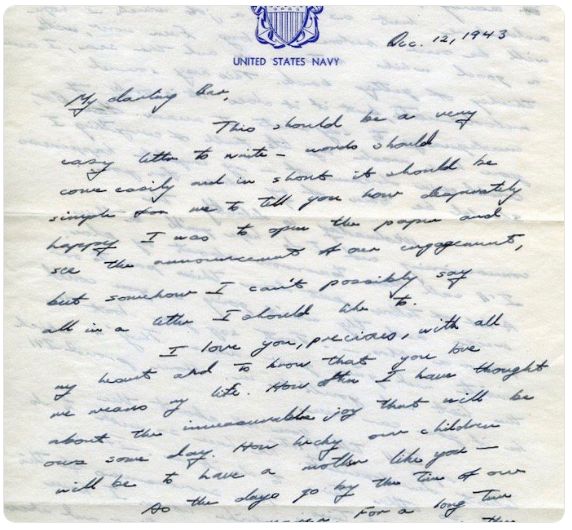 Dec. 12, 1943
UNITED STATES NAVY
My darling Bar,
This should be a very
easy letter to write — words should
come easily and in short it should be
simple for me to tell you how desperately
happy I was to open the paper and
see the announcement of our engagement,
but somehow I can't possibly say
all in a letter I should like to.
I love you, precious, with all
my heart and to know that you love
me means my life. How often I have thought
about the immeasurable joy that will be
ours some day. How lucky our children
will be to have a mother like you —
As the days go by the time of our
For a long time